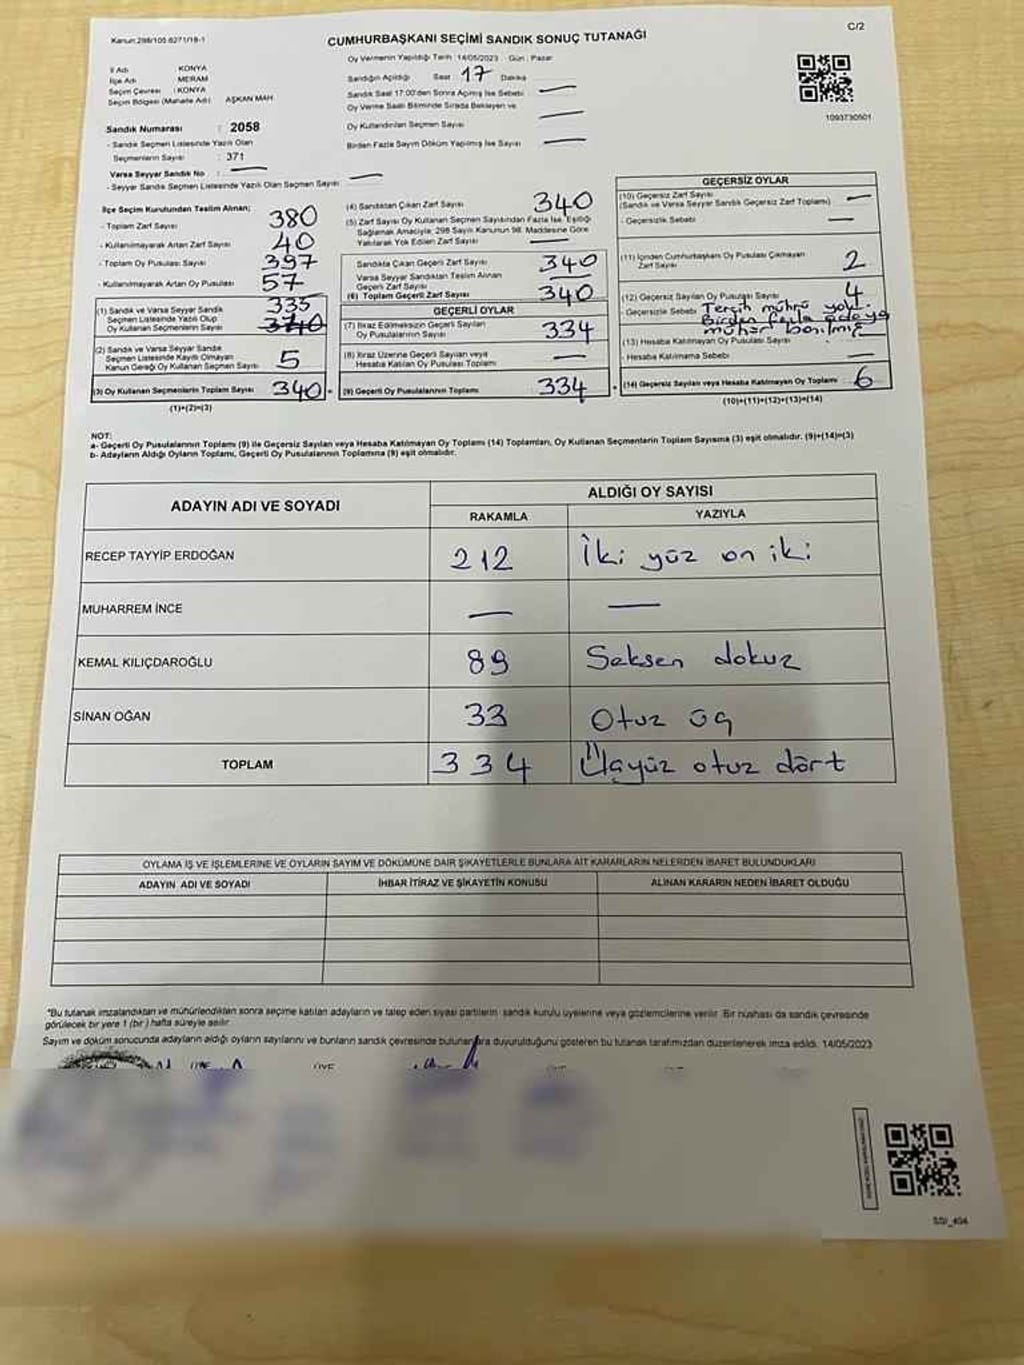 Kanun:298/105.6271/18-1
C/2
CUMHURBAŞKANI SEÇİMİ SANDIK SONUÇ TUTANAĞI
İl Adı : KONYA
İlçe Adı : MERAM
Seçim Çevresi : KONYA
Seçim Bölgesi (Mahalle Adı) : AŞKAN MAH
Sandık Numarası : 2058
- Sandık Seçmen Listesinde Yazılı Olan
Seçmenlerin Sayısı : 371
Varsa Seyyar Sandık No : —
- Seyyar Sandık Seçmen Listesinde Yazılı Olan Seçmen Sayısı —
Oy Vermenin Yapıldığı Tarih :14/05/2023 Gün : Pazar
Sandığın Açıldığı Saat 17 Dakika
Sandık Saat 17:00'den Sonra Açılmış İse Sebebi —
Oy Verme Saati Bitiminde Sırada Bekleyen ve
Oy Kullandırılan Seçmen Sayısı —
Birden Fazla Sayım Döküm Yapılmış İse Sayısı —
1093730501
İlçe Seçim Kurulundan Teslim Alınan;
- Toplam Zarf Sayısı 380
- Kullanılmayarak Artan Zarf Sayısı 40
- Toplam Oy Pusulası Sayısı 397
- Kullanılmayarak Artan Oy Pusulası 57
(1) Sandık ve Varsa Seyyar Sandık
Seçmen Listesinde Yazılı Olup
Oy Kullanan Seçmenlerin Sayısı
335
340
(2) Sandık ve Varsa Seyyar Sandık
Seçmen Listesinde Kayıtlı Olmayan
Kanun Gereği Oy Kullanan Seçmen Sayısı 5
(3) Oy Kullanan Seçmenlerin Toplam Sayısı 340
(1)+(2)=(3)
(4) Sandıktan Çıkan Zarf Sayısı 340
(5) Zarf Sayısı Oy Kullanan Seçmen Sayısından Fazla İse, Eşitliği
Sağlamak Amacıyla; 298 Sayılı Kanunun 98. Maddesine Göre
Yakılarak Yok Edilen Zarf Sayısı —
Sandıkta Çıkan Geçerli Zarf Sayısı 340
Varsa Seyyar Sandıktan Teslim Alınan
Geçerli Zarf Sayısı —
(6) Toplam Geçerli Zarf Sayısı 340
GEÇERLİ OYLAR
(7) İtiraz Edilmeksizin Geçerli Sayılan
Oy Pusulalarının Sayısı 334
(8) İtiraz Üzerine Geçerli Sayılan veya
Hesaba Katılan Oy Pusulası Toplamı —
(9) Geçerli Oy Pusulalarının Toplamı 334
GEÇERSİZ OYLAR
(10) Geçersiz Zarf Sayısı
(Sandık ve Varsa Seyyar Sandık Geçersiz Zarf Toplamı) —
- Geçersizlik Sebebi —
(11) İçinden Cumhurbaşkanı Oy Pusulası Çıkmayan
Zarf Sayısı 2
(12) Geçersiz Sayılan Oy Pusulası Sayısı 4
- Geçersizlik Sebebi Tercih mührü yok.
Birden fazla adaya
mühür basılmış
(13) Hesaba Katılmayan Oy Pusulası Sayısı
- Hesaba Katılmama Sebebi —
(14) Geçersiz Sayılan veya Hesaba Katılmayan Oy Toplamı 6
(10)+(11)+(12)+(13)=(14)
NOT:
a- Geçerli Oy Pusulalarının Toplamı (9) ile Geçersiz Sayılan veya Hesaba Katılmayan Oy Toplamı (14) Toplamları, Oy Kullanan Seçmenlerin Toplam Sayısına (3) eşit olmalıdır. (9)+(14)=(3)
b- Adayların Aldığı Oyların Toplamı, Geçerli Oy Pusulalarının Toplamına (9) eşit olmalıdır.
ADAYIN ADI VE SOYADI
ALDIĞI OY SAYISI
RAKAMLA YAZIYLA
RECEP TAYYİP ERDOĞAN 212 İki yüz on iki
MUHARREM İNCE — —
KEMAL KILIÇDAROĞLU 89 Seksen dokuz
SİNAN OĞAN 33 Otuz üç
TOPLAM 334 Üçyüz otuz dört
OYLAMA İŞ VE İŞLEMLERİNE VE OYLARIN SAYIM VE DÖKÜMÜNE DAİR ŞİKAYETLERLE BUNLARA AİT KARARLARIN NELERDEN İBARET BULUNDUKLARI
ADAYIN ADI VE SOYADI İHBAR İTİRAZ VE ŞİKAYETİN KONUSU ALINAN KARARIN NEDEN İBARET OLDUĞU
*Bu tutanak imzalandıktan ve mühürlendikten sonra seçime katılan adayların ve talep eden siyasi partilerin sandık kurulu üyelerine veya gözlemcilerine verilir. Bir nüshası da sandık çevresinde
görülecek bir yere 1 (bir) hafta süreyle asılır.
Sayım ve döküm sonucunda adayların aldığı oyların sayılarını ve bunların sandık çevresinde bulunanlara duyurulduğunu gösteren bu tutanak tarafımızdan düzenlenerek imza edildi. 14/05/2023
ÜYE ÜYE
SSI_404